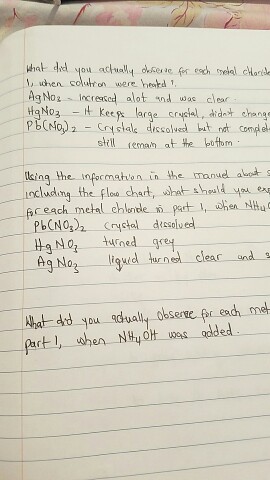 What did you actually observe for each metal chloride
1, when solution were heated?
AgNO3 - Increased alot and was clear
HgNO3 - It keeps large crystal, didn't change
Pb(NO3)2 - Crystals dissolved but not comple
still remain at the bottom.
Using the information in the manual about s
including the flow chart, what should you exp
for each metal chloride in part 1, when NH4O
Pb(NO3)2 crystal dissolved
HgNO3 turned grey
AgNO3 liquid turned clear and s
What did you actually observe for each met
part 1, when NH4OH was added.